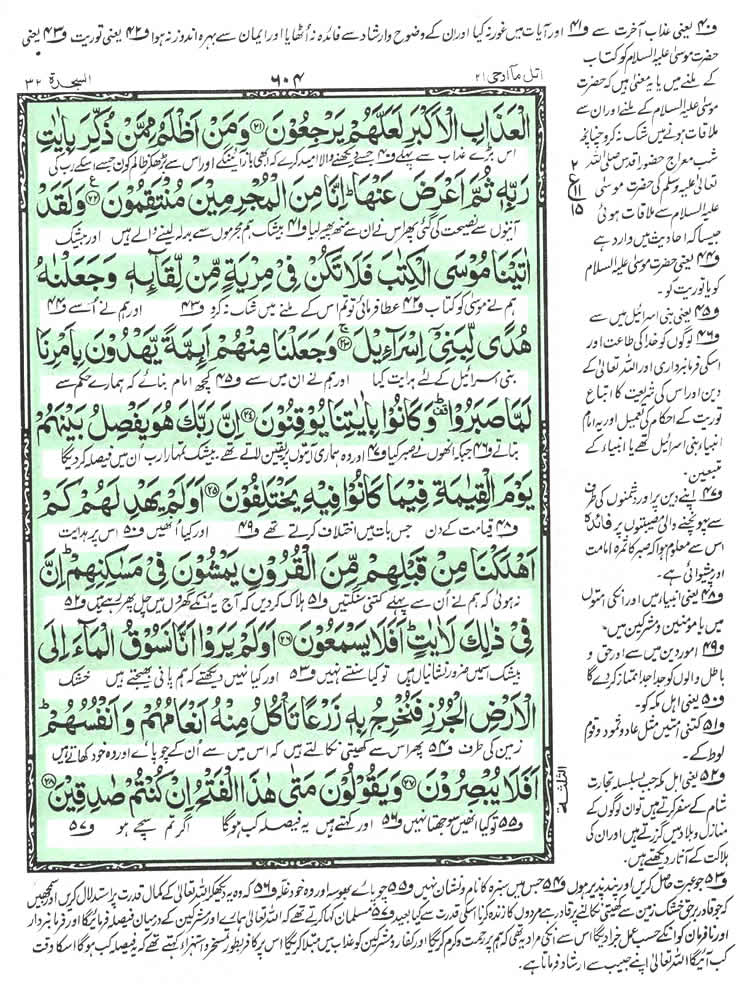 ف۴۰ یعنی عذاب آخرت سے ف۴۱ اور آیات میں غور نہ کیا اور ان کے وضوح و ارشاد سے فائدہ نہ اٹھایا اور ایمان سے بہرہ اندوز نہ ہوا ف۴۲ یعنی توریت ف۴۳ یعنی
اتل مآ اوحی ۲۱
۶۰۴
السجدۃ ۳۲
الْعَذَابِ الْاَكْبَرِ لَعَلَّهُمْ يَرْجِعُوْنَ ﴿۲۱﴾ وَمَنْ اَظْلَمُ مِمَّنْ ذُكِّرَ بِاٰيٰتِ
اس بڑے عذاب سے پہلے ف۴۰ جسے دیکھنے والا امید کرے کہ ابھی باز آئینگے اور اس سے بڑھکر ظالم کون جسے اسکے رب کی
رَبِّهٖ ثُمَّ اَعْرَضَ عَنْهَا ؕ اِنَّا مِنَ الْمُجْرِمِيْنَ مُنْتَقِمُوْنَ ﴿۲۲﴾ وَلَقَدْ
آیتوں سے نصیحت کی گئی پھر اس نے ان سے منھ پھیر لیا ف۴۱ بیشک ہم مجرموں سے بدلہ لینے والے ہیں اور بیشک
اٰتَيْنَا مُوْسَى الْكِتٰبَ فَلَا تَكُنْ فِيْ مِرْيَةٍ مِّنْ لِّقَآئِهٖ وَجَعَلْنٰهُ
ہم نے موسیٰ کو کتاب ف۴۲ عطا فرمائی تو تم اس کے ملنے میں شک نہ کرو ف۴۳ اور ہم نے اسے ف۴۴
هُدًى لِّبَنِيْٓ اِسْرَآءِيْلَ ﴿۲۳﴾ وَجَعَلْنَا مِنْهُمْ اَئِمَّةً يَّهْدُوْنَ بِاَمْرِنَا
بنی اسرائیل کے لئے ہدایت کیا اور ہم نے ان میں سے ف۴۵ کچھ امام بنائے کہ ہمارے حکم سے
لَمَّا صَبَرُوْا ؕ وَكَانُوْا بِاٰيٰتِنَا يُوْقِنُوْنَ ﴿۲۴﴾ اِنَّ رَبَّكَ هُوَ يَفْصِلُ بَيْنَهُمْ
بتاتے ف۴۶ جبکہ انھوں نے صبر کیا ف۴۷ اور وہ ہماری آیتوں پر یقین لاتے تھے بیشک تمہارا رب ان میں فیصلہ کردیگا
يَوْمَ الْقِيٰمَةِ فِيْمَا كَانُوْا فِيْهِ يَخْتَلِفُوْنَ ﴿۲۵﴾ اَوَلَمْ يَهْدِ لَهُمْ كَمْ
ف۴۸ قیامت کے دن جس بات میں اختلاف کرتے تھے ف۴۹ اور کیا انھیں ف۵۰ اس پر ہدایت
اَهْلَكْنَا مِنْ قَبْلِهِمْ مِّنَ الْقُرُوْنِ يَمْشُوْنَ فِيْ مَسٰكِنِهِمْ ؕ اِنَّ
نہ ہوئی کہ ہم نے ان سے پہلے کتنی سنگتیں ف۵۱ ہلاک کردیں کہ آج یہ انکے گھروں میں چل پھر رہے ہیں ف۵۲
فِيْ ذٰلِكَ لَاٰيٰتٍ ؕ اَفَلَا يَسْمَعُوْنَ ﴿۲۶﴾ اَوَلَمْ يَرَوْا اَنَّا نَسُوْقُ الْمَآءَ اِلَى
بیشک اسمیں ضرور نشانیاں ہیں تو کیا سنتے نہیں ف۵۳ اور کیا نہیں دیکھتے کہ ہم پانی بھیجتے ہیں خشک
الْاَرْضِ الْجُرُزِ فَنُخْرِجُ بِهٖ زَرْعًا تَاْكُلُ مِنْهُ اَنْعَامُهُمْ وَاَنْفُسُهُمْ ؕ
زمین کی طرف ف۵۴ پھر اس سے کھیتی نکالتے ہیں کہ اس میں سے ان کے چوپائے اور وہ خود کھاتے ہیں
اَفَلَا يُبْصِرُوْنَ ﴿۲۷﴾ وَيَقُوْلُوْنَ مَتٰى هٰذَا الْفَتْحُ اِنْ كُنْتُمْ صٰدِقِيْنَ ﴿۲۸﴾
ف۵۵ تو کیا انھیں سوجھتا نہیں ف۵۶ اور کہتے ہیں یہ فیصلہ کب ہوگا اگر تم سچے ہو ف۵۷
حضرت موسیٰ علیہ السلام کو کتاب
کے ملنے میں یا یہ معنیٰ ہیں کہ حضرت
موسیٰ علیہ السلام کے ملنے اور ان سے
ملاقات ہونے میں شک نہ کرو چنانچہ
شب معراج حضور اقدس صلی اللہ
تعالیٰ علیہ وسلم کی حضرت موسیٰ
علیہ السلام سے ملاقات ہوئی
جیسا کہ احادیث میں وارد ہے
ف۴۴ یعنی حضرت موسیٰ علیہ السلام
کو یا توریت کو۔
ف۴۵ یعنی بنی اسرائیل میں سے
ف۴۶ لوگوں کو خدا کی طاعت اور
اسکی فرمانبرداری اور اللہ تعالیٰ کے
دین اور اس کی شریعت کا اتباع
توریت کے احکام کی تعمیل اور یہ امام
انبیاء بنی اسرائیل تھے یا انبیاء کے
متبعین۔
ف۴۷ اپنے دین پر اور دشمنوں کی طرف
سے پہونچنے والی مصیبتوں پر فائدہ
اس سے معلوم ہوا کہ صبر کا ثمرہ امامت
اور پیشوائی ہے۔
ف۴۸ یعنی انبیاء میں اور انکی امتوں
میں یا مؤمنین و مشرکین میں۔
ف۴۹ امور دین میں سے اور حق و
باطل والوں کو جدا جدا ممتاز کردے گا
ف۵۰ یعنی اہل مکہ کو۔
ف۵۱ کتنی امتیں مثل عاد و ثمود و قوم
لوط کے۔
ف۵۲ یعنی اہل مکہ جب بسلسلہ تجارت
شام کے سفر کرتے ہیں تو ان لوگوں کے
منازل و بلاد میں گزرتے ہیں اور ان کی
ہلاکت کے آثار دیکھتے ہیں۔
ف۵۳ جو عبرت حاصل کریں اور پند پذیر ہوں ف۵۴ جس میں سبزہ کا نام و نشان نہیں ف۵۵ چوپائے بھوسہ اور وہ خود غلہ ف۵۶ کہ وہ یہ دیکھکر اللہ تعالیٰ کے کمال قدرت پر استدلال کریں اور سمجھیں
کہ جو قادر برحق خشک زمین سے کھیتی نکالنے پر قادر ہے مردوں کا زندہ کرنا اسکی قدرت سے کیا بعید ف۵۷ مسلمان کہا کرتے تھے کہ اللہ تعالیٰ ہمارے اور مشرکین کے درمیان فیصلہ فرمائیگا اور فرمانبردار
اور نافرمان کو انکے حسب عمل جزا دیگا اس سے انکی مراد یہ تھی کہ ہم پر رحمت و کرم کریگا اور کفار و مشرکین کو عذاب میں مبتلا کریگا اس پر کافر بطور تمسخر و استہزاء کہتے تھے کہ یہ فیصلہ کب ہوگا اسکا وقت
کب آئیگا اللہ تعالیٰ اپنے حبیب سے ارشاد فرماتا ہے۔